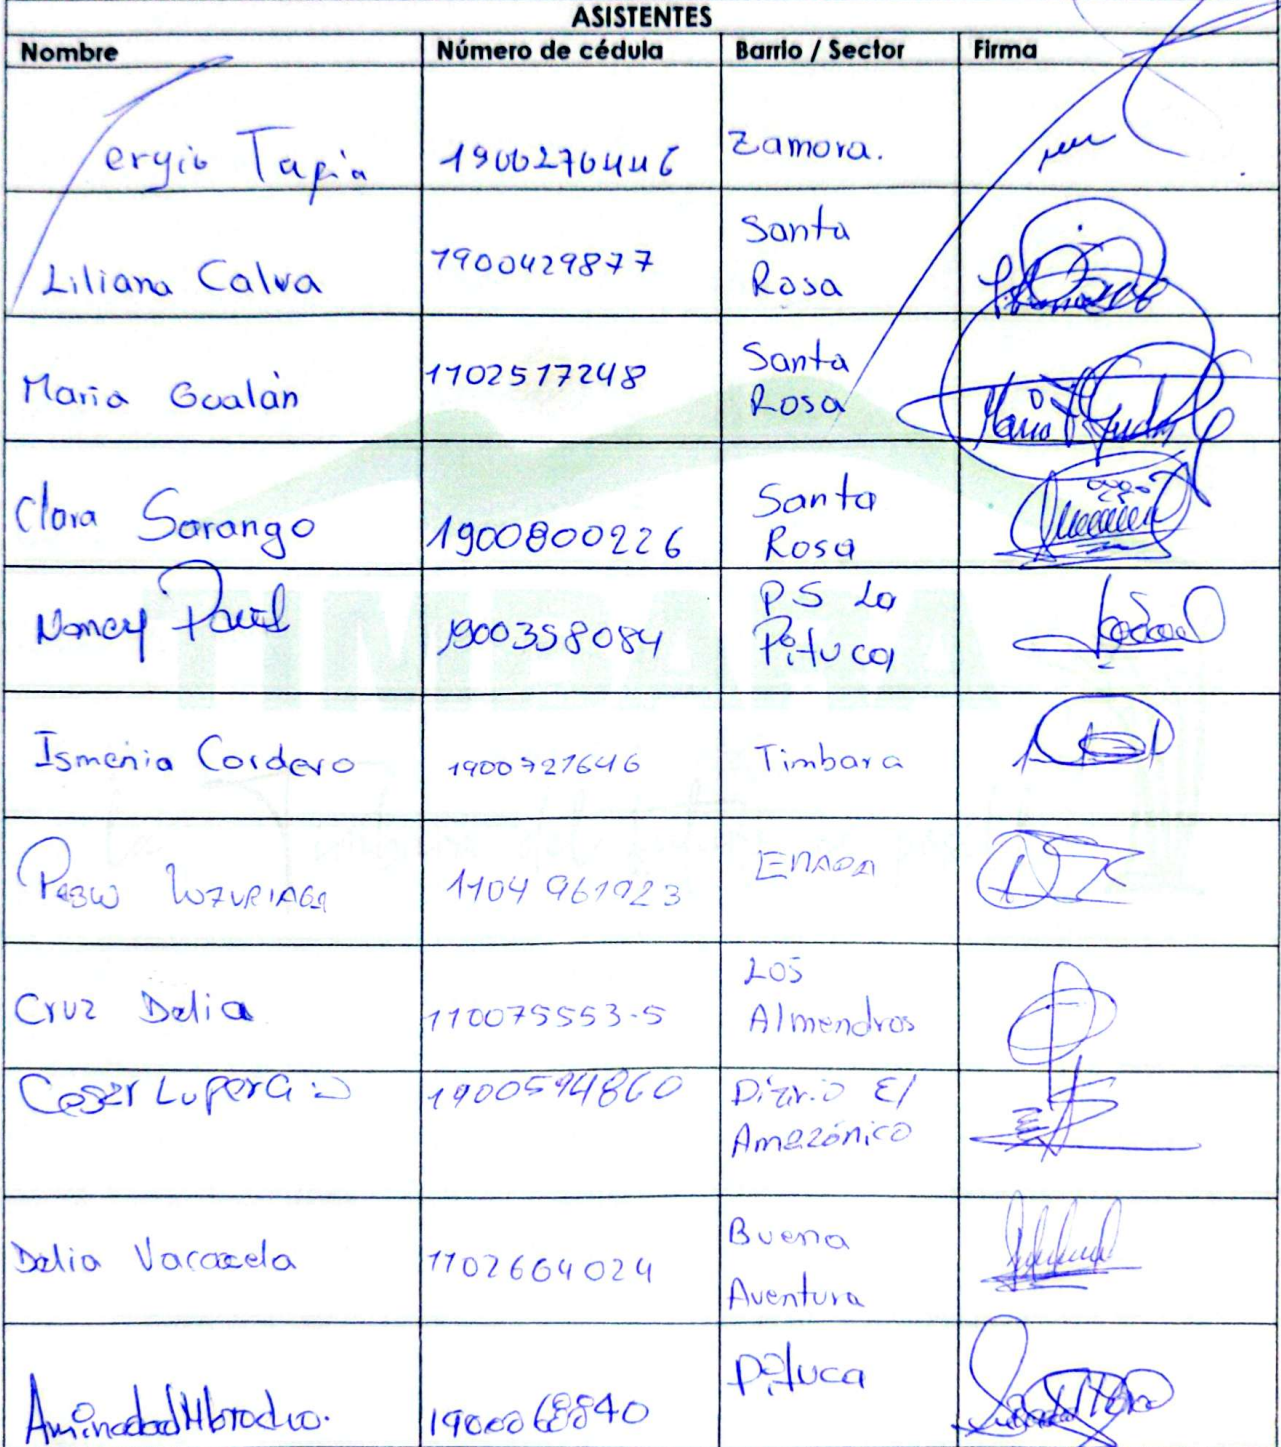 ASISTENTES
Nombre Número de cédula Barrio / Sector Firma
Sergio Tapia 1900270446 Zamora.
Liliana Calva 1900429877 Santa Rosa
Maria Gualán 1102517248 Santa Rosa
Clara Sarango 1900800226 Santa Rosa
Nancy 1900358084 PS La Pituca
Ismenia Cordero 1900721646 Timbara
Pablo Luzuriaga 1104961923
Cruz Delia 110075553-5 Los Almendros
Cesar Lupercio 1900594860 Diario El Amazónico
Delia Vacacela 1102664024 Buena Aventura
Pituca
TIMBARA